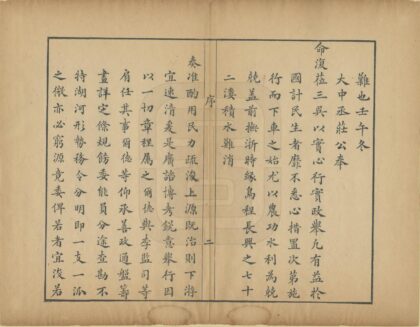 難也壬午冬
大中丞莊公奉
命復莅三吳以實心行實政舉凡有益於
國計民生者靡不悉心措置次第施
行而下車之始尤以農功水利為兢
兢蓋前撫浙時緣烏程長興之七十
二漊積水難消
序
二
奏准酌用民力疏浚上源既治則下游
宜速清爰是廣諮博考銳意舉行因
以一切章程屬之爾德與李監司等
肩任其事爾德等仰承善政通盤籌
畫詳定條規飭委能員分途查勘不
特湖河形勢務令分明即一支一派
之微亦必窮源竟委俾若者宜浚若